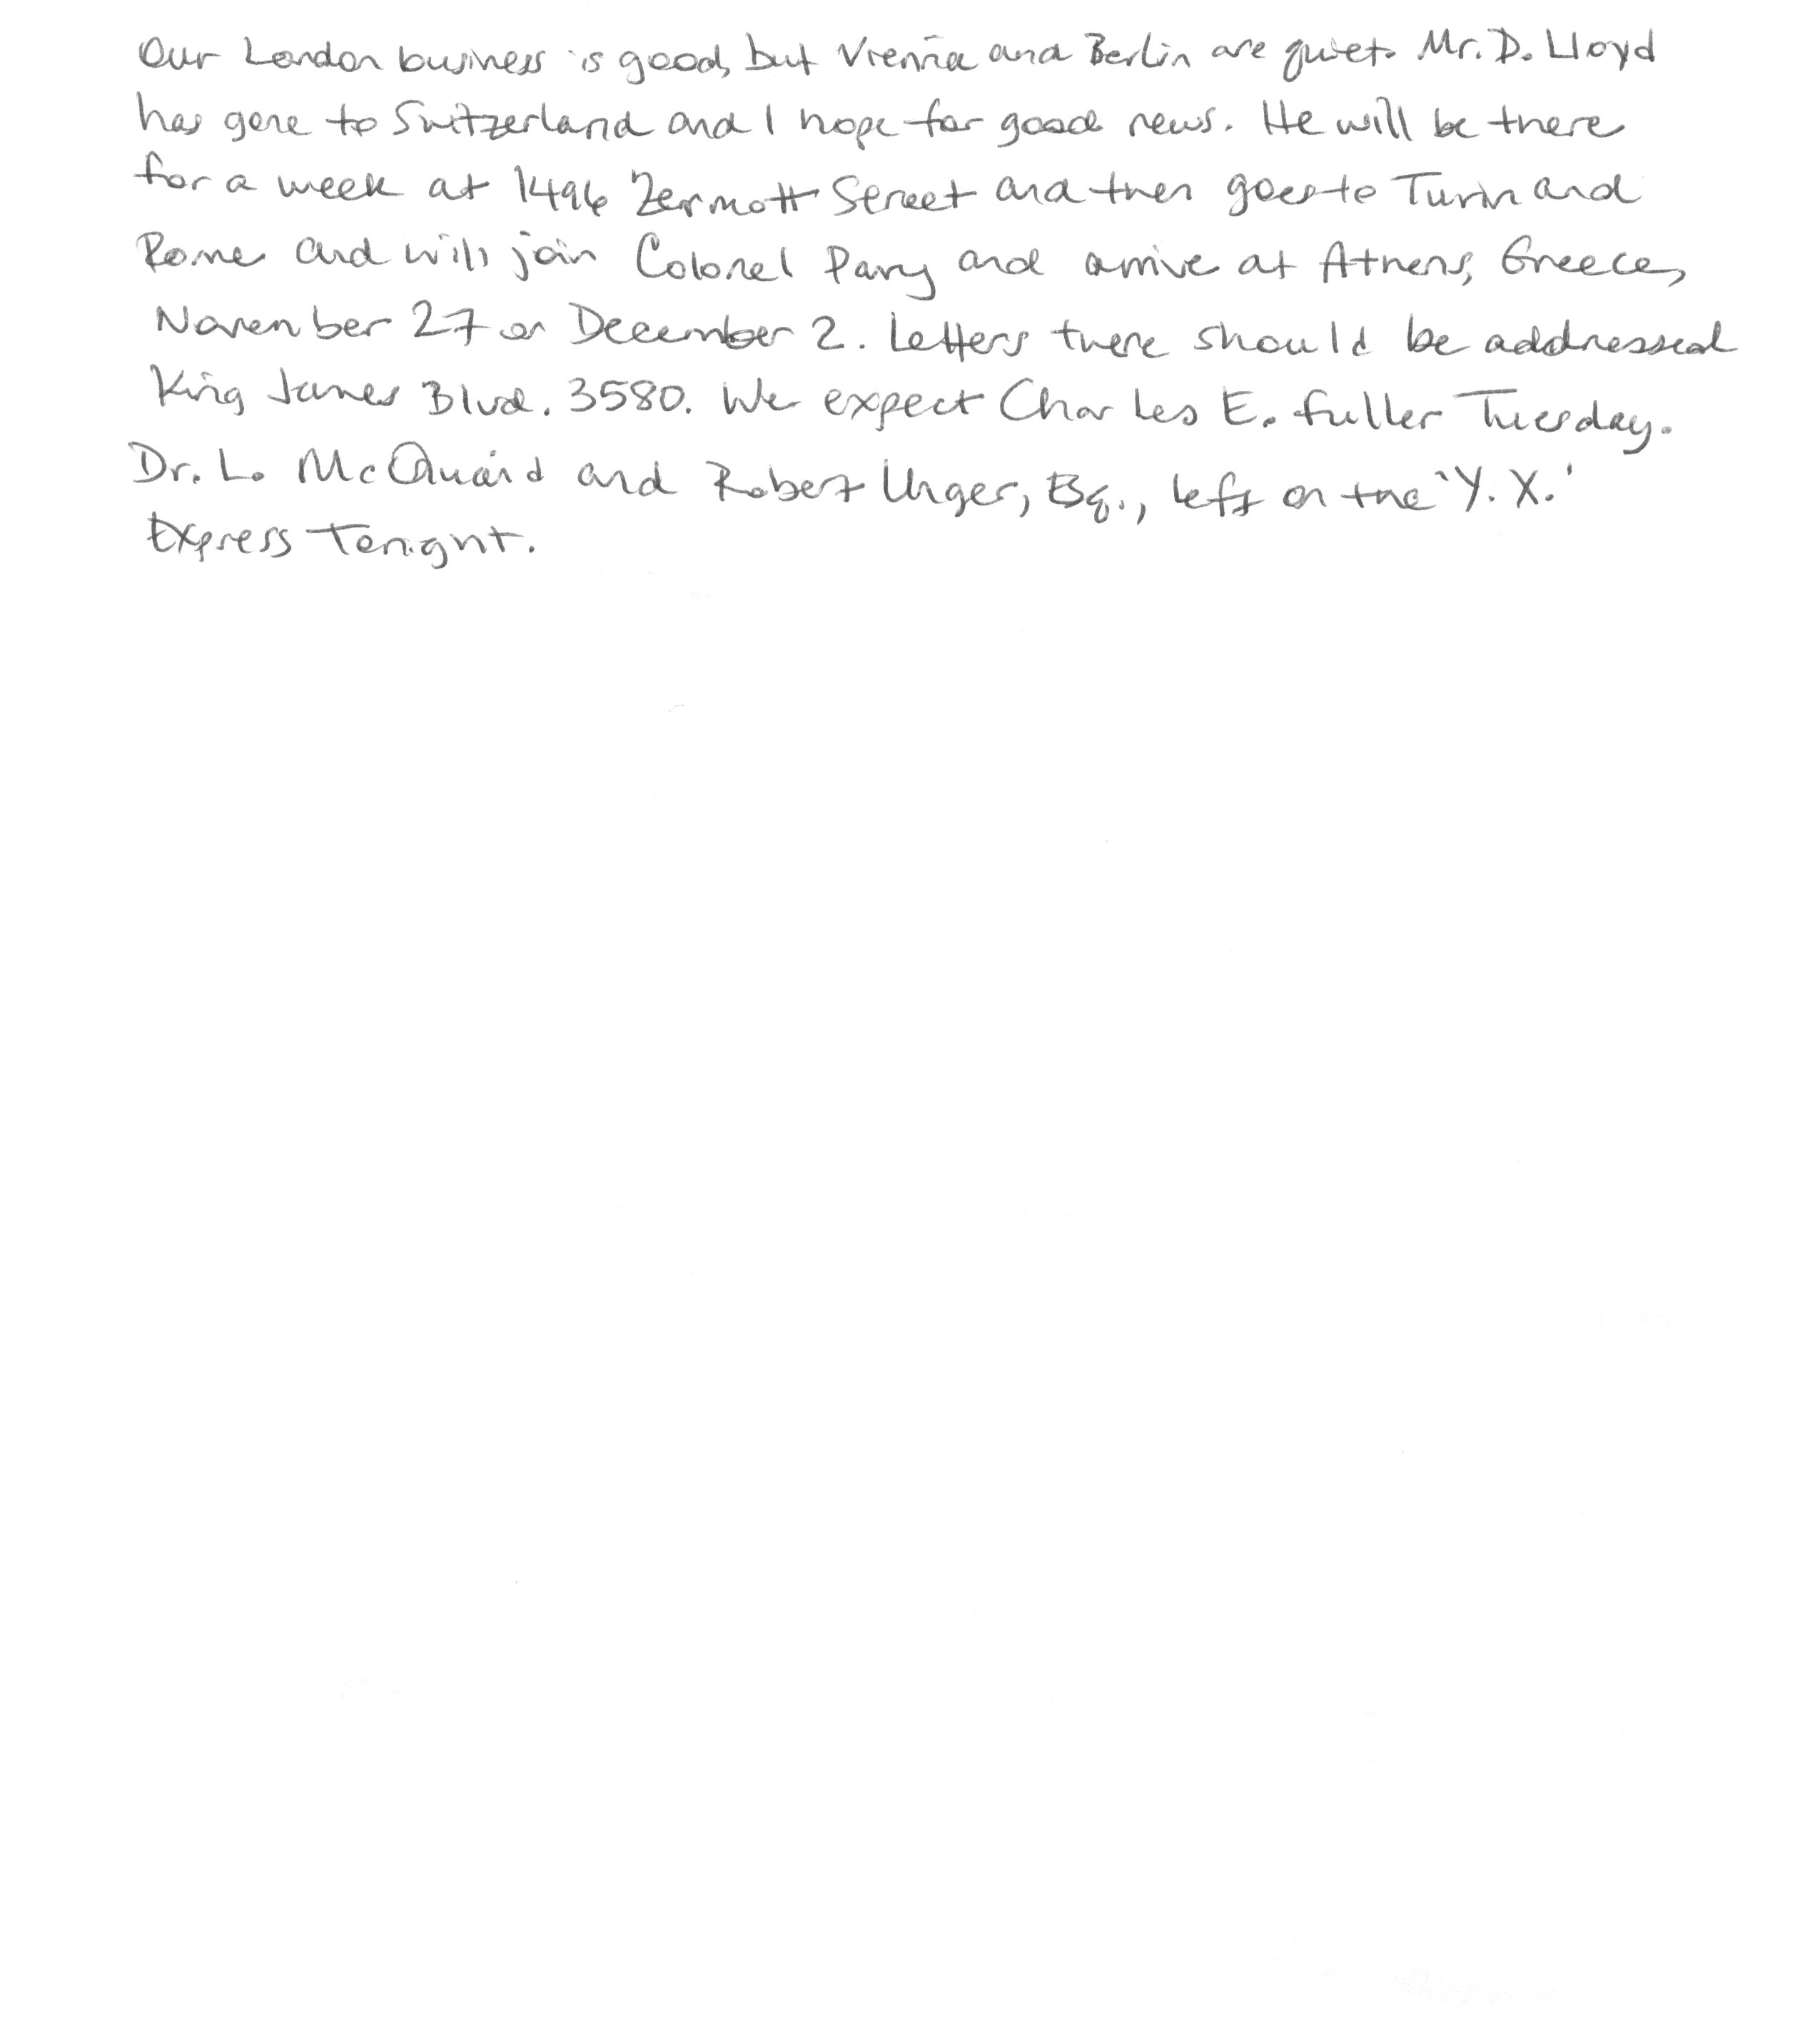 Our London business is good, but Vienna and Berlin are quiet. Mr. D. Lloyd
has gone to Switzerland and I hope for good news. He will be there
for a week at 1496 Zermott Street and then goes to Turin and
Rome and will join Colonel Parry and arrive at Athens, Greece,
November 27 or December 2. Letters there should be addressed
King James Blvd. 3580. We expect Charles E. Fuller Tuesday.
Dr. L. McQuaid and Robert Unger, Esq., left on the 'Y. X.'
Express Tonight.